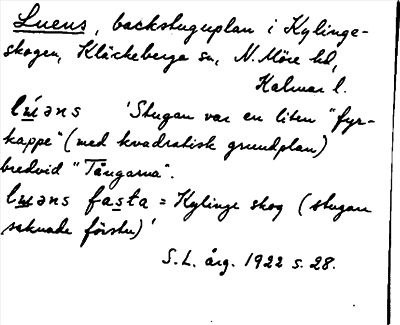 Luens, backstuguplan i Kylinge-
skogen, Kläckeberga sn, N. Möre hd,
Kalmar l.
lú̵əns 'Stugan var en liten "fyr-
kappe" (med kvadratisk grundplan)
bredvid "Tångarna".
lú̵əns fasta = Kylinge skog (stugan
saknade förstu)'
S.L. årg. 1922 s. 28.